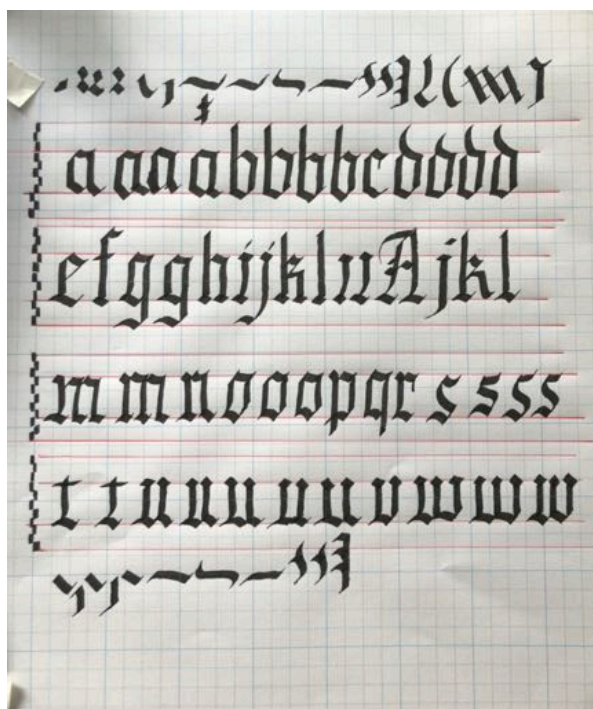 a a a a b b b b c d d d d
e f g g h i j k l u A j k l
m m n o o o p q r s s s s
t t u u u u u v w w w